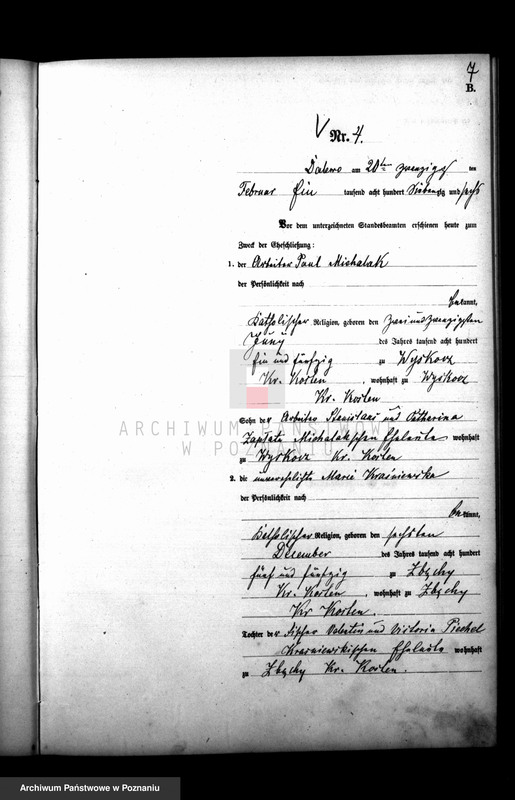 7
B.
Nr. 4.
Dalewo am 20ten zwanzigsten
Februar Ein tausend acht hundert Siebenzig und sechs
Vor dem unterzeichneten Standesbeamten erschienen heute zum
Zweck der Eheschließung:
1. der Arbeiter Paul Michalak
der Persönlichkeit nach
bekannt,
katholischer Religion, geboren den zwei und zwanzigsten
des Jahres tausend acht hundert
ein und fünfzig zu Wyskocz
Kr. Kosten, wohnhaft zu Wyskocz
Kr. Kosten
Sohn der Arbeiter Stanislaus und Catharina
Michalakschen Eheleute wohnhaft
zu Wyskocz Kr. Kosten
2. die unverehelichte Marie Krasniewska
der Persönlichkeit nach
bekannt,
katholischer Religion, geboren den sechsten
Dezember des Jahres tausend acht hundert
fünf und fünfzig zu Zbęchy
Kr. Kosten, wohnhaft zu Zbęchy
Kr Kosten.
Tochter der Fischer Valentin und Victoria
Krasniewskischen Eheleute wohnhaft
zu Zbęchy Kr. Kosten.
ARCHIWUM PAŃSTWOWE
W POZNANIU
Archiwum Państwowe w Poznaniu